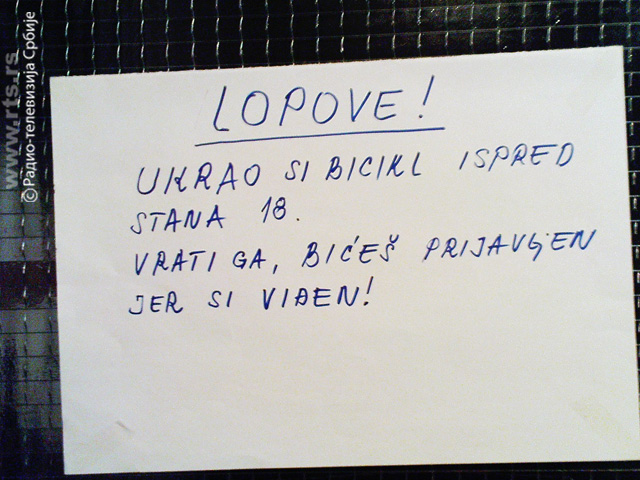 LOPOVE!
UKRAO SI BICIKL ISPRED
STANA 18.
VRATI GA, BIĆEŠ PRIJAVLjEN
JER SI VIĐEN!
www.rts.rs
© Радио-телевизија Србије